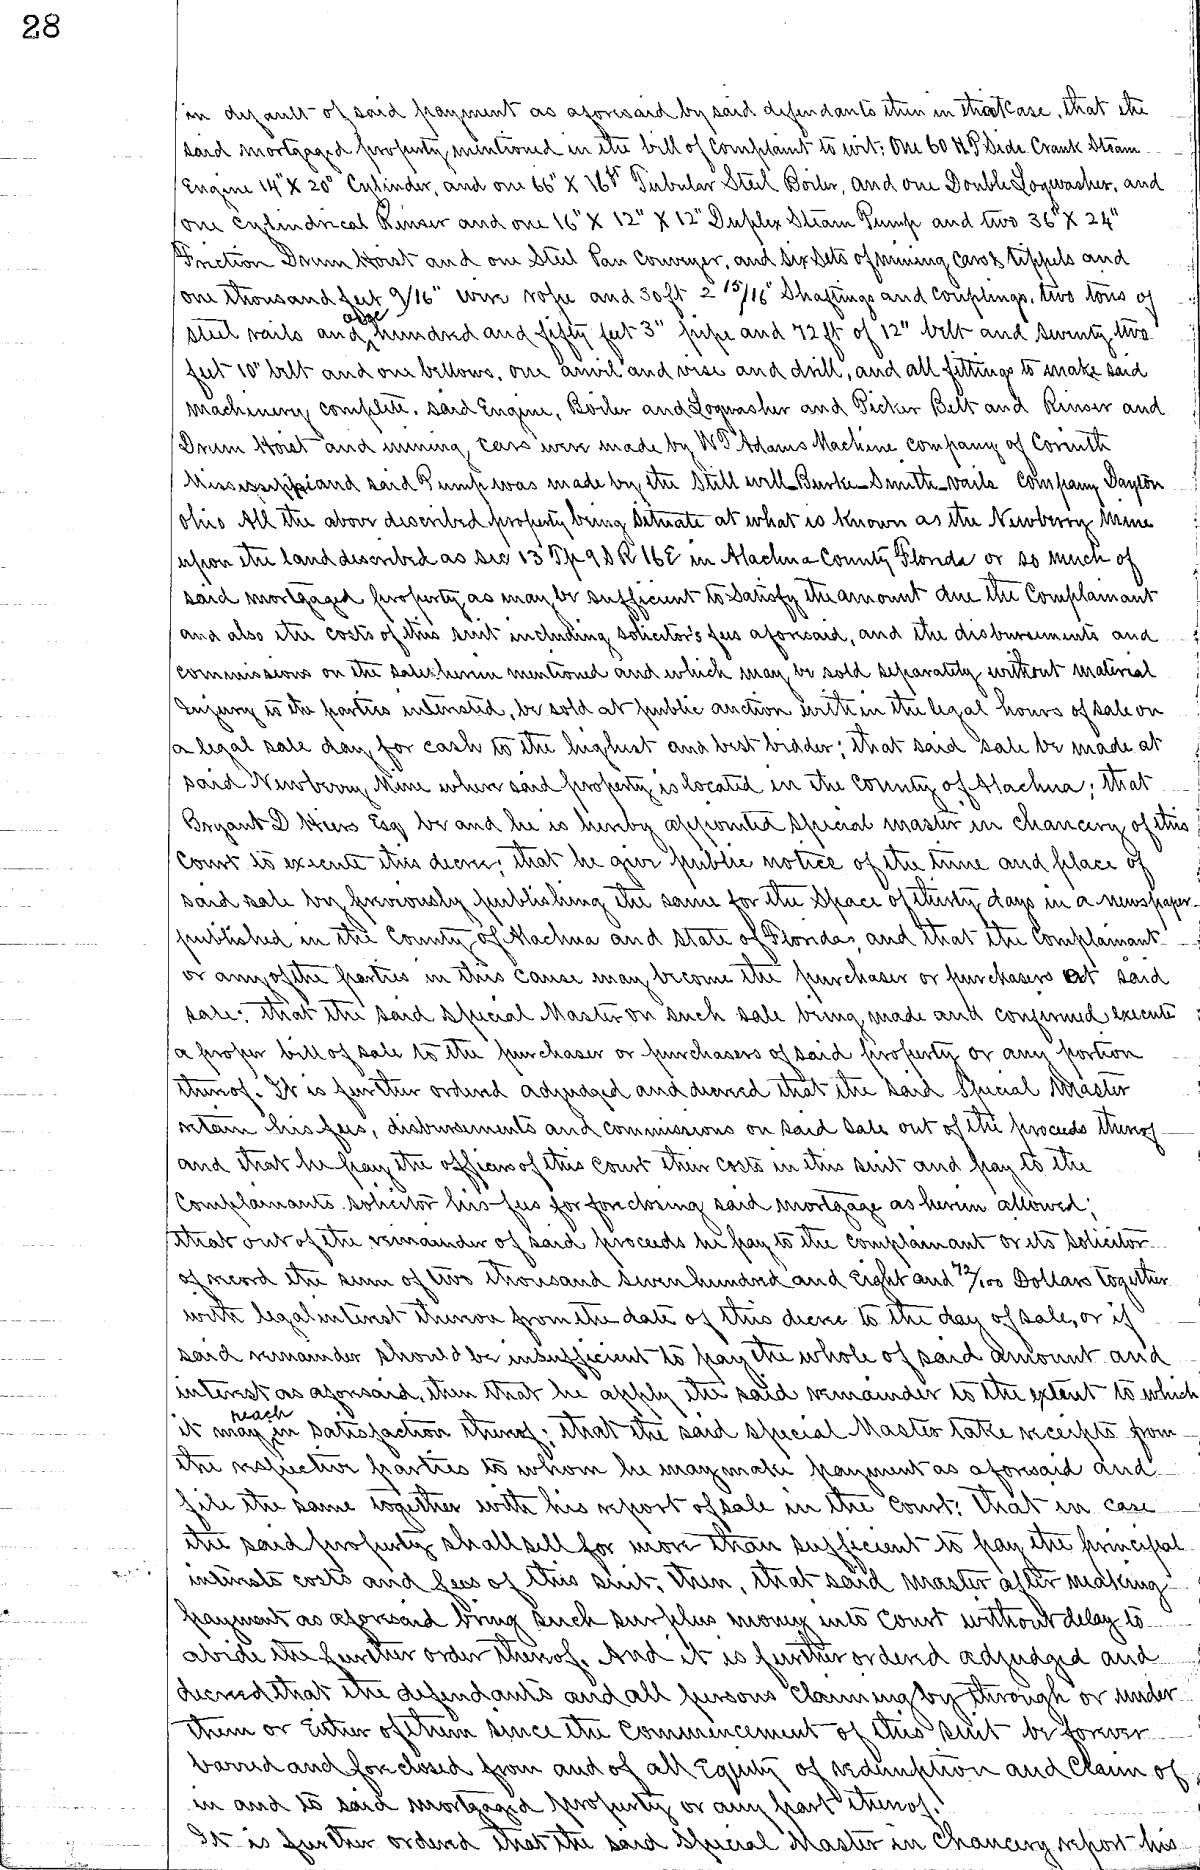 28
in default of said payment as aforesaid by said defendants then in that case, that the
said mortgaged property mentioned in the bill of complaint to wit: One 60 H.P Side Crank Steam
Engine 14" X 20" Cylinder, and one 66" X 16ft Tubular Steel Boiler, and one Double Logwasher, and
one Cylindrical Rinser and one 16" X 12" X 12" Duplex Steam Pump and two 36" X 24"
Friction Drum Hoist and one Steel Pan Conveyer, and six sets of mining cars & tippels and
one thousand feet 9/16" wire rope and 30 ft 2 15/16" Shaftings and couplings, two tons of
steel rails and one hundred and fifty feet 3" pipe and 72 ft of 12" belt and seventy two
feet 10" belt and one bellows, one anvil and vise and drill, and all fittings to make said
machinery complete. Said Engine, Boiler and Logwasher and Picker Belt and Rinser and
Drum Hoist and mining cars were made by W T Adams Machine company of Corinth
Mississippi and said Pump was made by the Still well-Burke-Smith-vaile Company Dayton
Ohio All the above described property being situate at what is known as the Newberry Mine
upon the land described as sec 13 Tp 9 S R 16 E in Alachua County Florida or so much of
said mortgaged property as may be sufficient to satisfy the amount due the Complainant
and also the costs of this suit including solicitor's fees aforesaid, and the disbursements and
commissions on the sale herein mentioned and which may be sold separately without material
Injury to the parties interested, be sold at public auction within the legal hours of sale on
a legal sale day for cash to the highest and best bidder; that said sale be made at
said Newberry Mine where said property is located in the County of Alachua; that
Bryant D Hiers Esq be and he is hereby appointed special master in chancery of this
Court to execute this decree; that he give public notice of the time and place of
said sale by previously publishing the same for the space of thirty days in a newspaper
published in the County of Alachua and State of Florida, and that the Complainant
or any of the parties in this cause may become the purchaser or purchasers at said
sale; that the said Special Master on such sale being made and confirmed execute
a proper bill of sale to the purchaser or purchasers of said property or any portion
thereof. It is further ordered adjudged and decreed that the said Special Master
retain his fees, disbursements and commissions on said sale out of the proceeds thereof
and that he pay the officers of this court their costs in this suit and pay to the
Complainants solicitor his fees for foreclosing said mortgage as herein allowed;
that out of the remainder of said proceeds he pay to the complainant or its solicitor
of record the sum of two thousand seven hundred and Eight and 72/100 Dollars together
with legal interest thereon from the date of this decree to the day of sale, or if
said remainder should be insufficient to pay the whole of said amount and
interest as aforesaid, then that he apply the said remainder to the extent to which
it may reach in satisfaction thereof; that the said Special Master take receipts from
the respective parties to whom he may make payment as aforesaid and
file the same together with his report of sale in the court; that in case
the said property shall sell for more than sufficient to pay the principal
interests costs and fees of this suit, then, that said master after making
payment as aforesaid bring such surplus money into court without delay to
abide the further order thereof. And it is further ordered adjudged and
decreed that the defendants and all persons claiming by through or under
them or Either of them since the commencement of this suit be forever
barred and foreclosed from and of all Equity of redemption and Claim of
in and to said mortgaged property or any part thereof.
It is further ordered that the said Special Master in Chancery report his